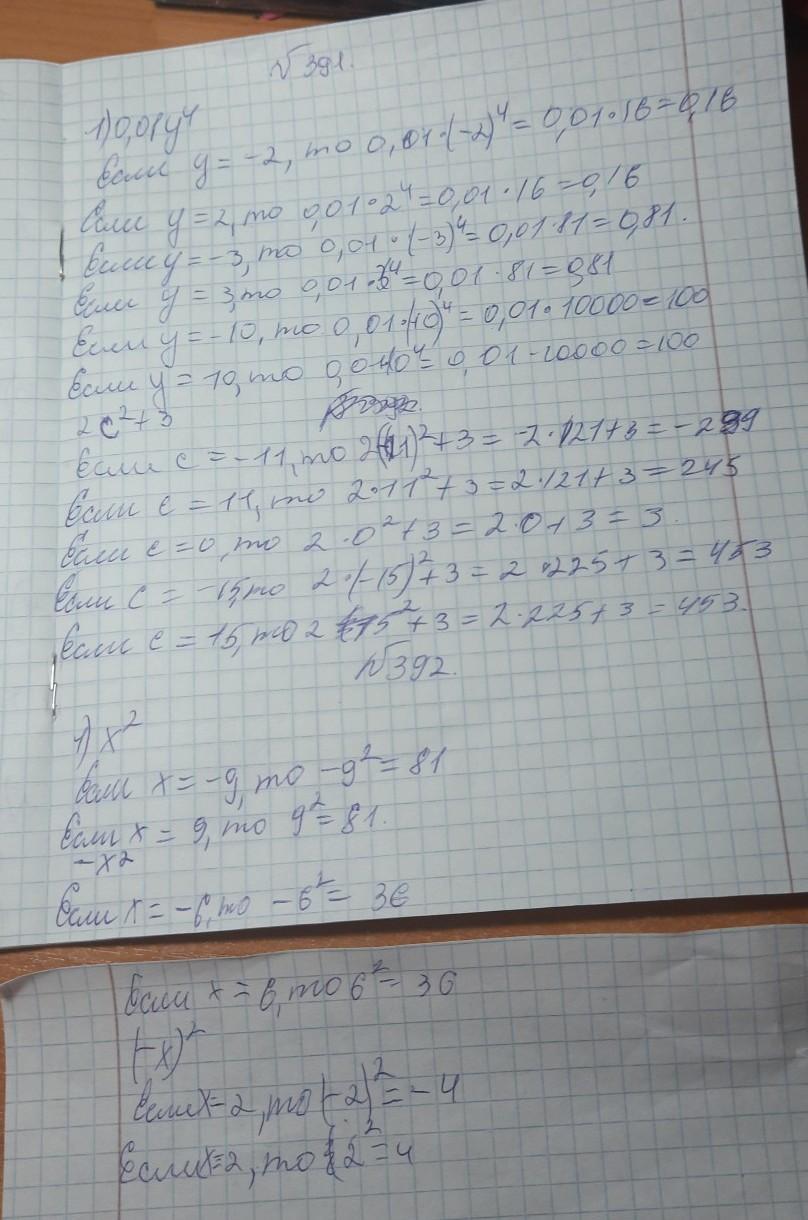 №391.
1) 0,01y⁴
Если y = -2, то 0,01·(-2)⁴ = 0,01·16 = 0,16
Если y = 2, то 0,01·2⁴ = 0,01·16 = 0,16
Если y = -3, то 0,01·(-3)⁴ = 0,01·81 = 0,81.
Если y = 3, то 0,01·3⁴ = 0,01·81 = 0,81
Если y = -10, то 0,01·(-10)⁴ = 0,01·10000 = 100
Если y = 10, то 0,0110⁴ = 0,01·10000 = 100
2c²+3
Если c = -11, то 2(-11)²+3 = -2·121+3 = -239
Если c = 11, то 2·11²+3 = 2·121+3 = 245
Если c = 0, то 2·0²+3 = 2·0+3 = 3.
Если c = -15, то 2·(-15)²+3 = 2·225+3 = 453
Если c = 15, то 2 15²+3 = 2·225+3 = 453.
№392.
1) x²
Если x = -9, то -9² = 81
Если x = 9, то 9² = 81.
-x2
Если x = -6, то -6² = 36
Если x = 6, то 6² = 36
(-x)²
Если x-2, то (-2)² = -4
Если x=2, то 2² = 4